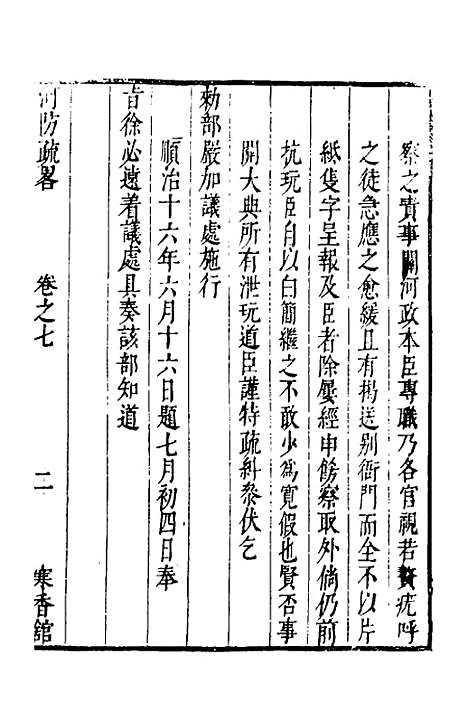 察之責事關河政本臣專職乃各官視若贅疣呼
之徒急應之愈緩且有揭送别衙門而全不以片
紙隻字呈報及臣者除屢經申飭察取外倘仍前
抗玩臣自以白簡繼之不敢少爲寬假也賢否事
關大典所有泄玩道臣謹特疏糾叅伏乞
勅部嚴加議處施行
順治十六年六月十六日題七月初四日奉
旨徐必遠着議處具奏該部知道
河防疏畧 卷之七 二 寒香館